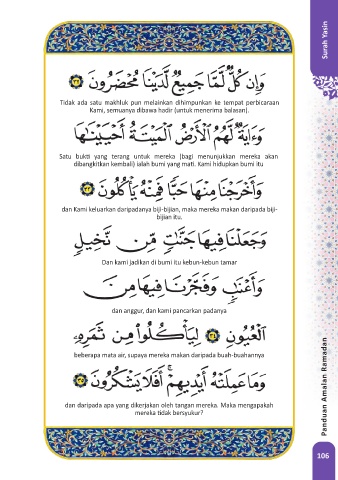 Surah Yasin
وَإِن كُلٌّ لَّمَّا جَمِيعٌ لَّدَيْنَا مُحْضَرُونَ ٣٢
Tidak ada satu makhluk pun melainkan dihimpunkan ke tempat perbicaraan
Kami, semuanya dibawa hadir (untuk menerima balasan).
وَءَايَةٌ لَّهُمُ ٱلْأَرْضُ ٱلْمَيْتَةُ أَحْيَيْنَٰهَا
Satu bukti yang terang untuk mereka (bagi menunjukkan mereka akan
dibangkitkan kembali) ialah bumi yang mati. Kami hidupkan bumi itu
وَأَخْرَجْنَا مِنْهَا حَبًّا فَمِنْهُ يَأْكُلُونَ ٣٣
dan Kami keluarkan daripadanya biji-bijian, maka mereka makan daripada biji-
bijian itu.
وَجَعَلْنَا فِيهَا جَنَّٰتٍ مِّن نَّخِيلٍ
Dan kami jadikan di bumi itu kebun-kebun tamar
وَأَعْنَٰبٍ وَفَجَّرْنَا فِيهَا مِنَ
dan anggur, dan kami pancarkan padanya
ٱلْعُيُونِ ٣٤ لِيَأْكُلُوا۟ مِن ثَمَرِهِۦ
beberapa mata air, supaya mereka makan daripada buah-buahannya
وَمَا عَمِلَتْهُ أَيْدِيهِمْ ۖ أَفَلَا يَشْكُرُونَ ٣٥
dan daripada apa yang dikerjakan oleh tangan mereka. Maka mengapakah
mereka tidak bersyukur?
Panduan Amalan Ramadan
106